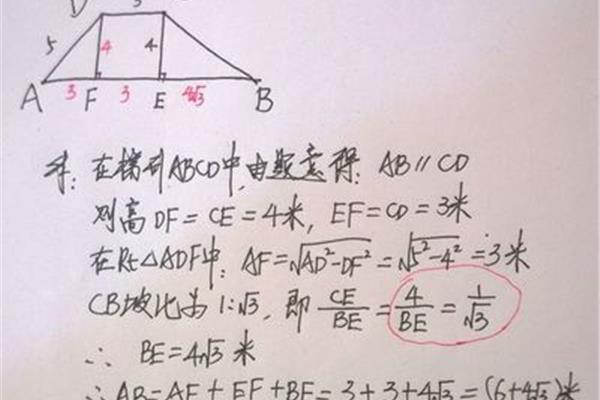 D 3
5 4 4
A 3 F 3 E 4√3 B
解：在梯形ABCD中,由题意得：AB∥CD
则高DF=CE=4米，EF=CD=3米
在Rt△ADF中：AF=√(AD²-DF²)=√(5²-4²)=3米
CB坡比为1:√3，即 CE/BE = 4/BE = 1/√3
∴ BE=4√3米
∴AB=AF+EF+BE=3+3+4√3=(6+4√3)米